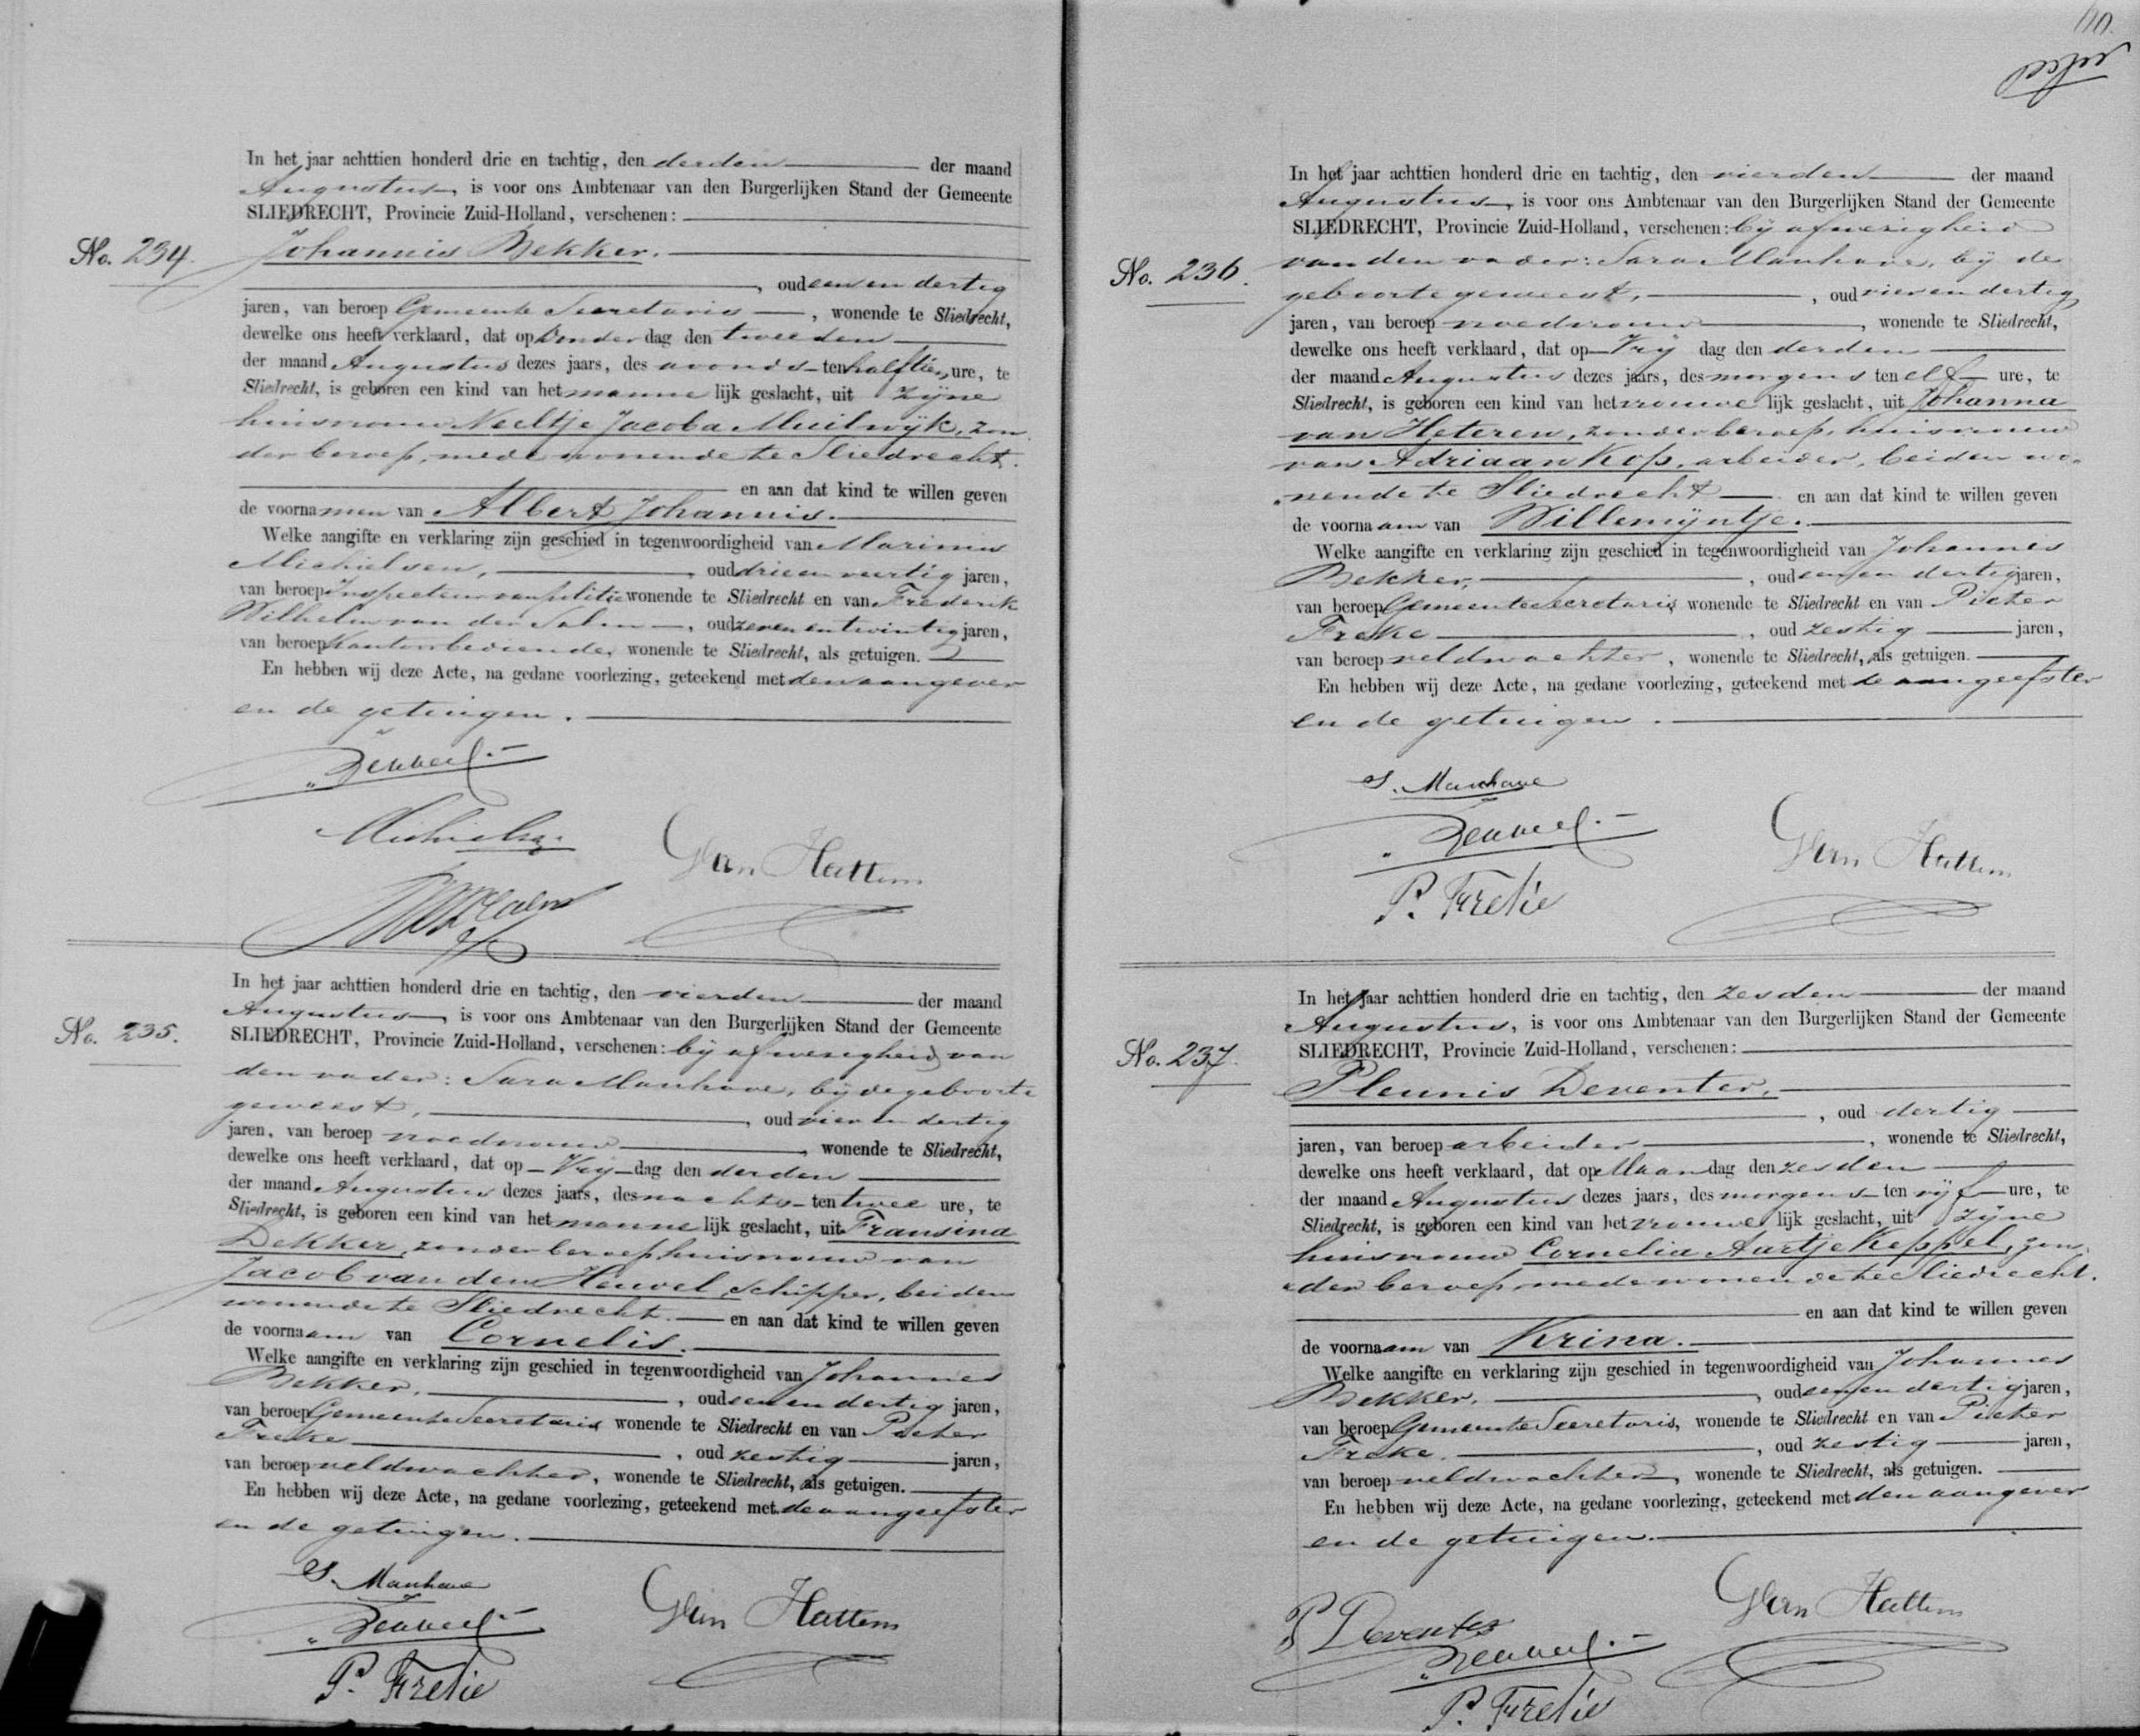 In het jaar achttien honderd drie en tachtig, den derden der maand
Augustus, is voor ons Ambtenaar van den Burgerlijken Stand der Gemeente
SLIEDRECHT, Provincie Zuid-Holland, verschenen:
No. 234. Johannis Bekker.
, oud een en dertig
jaren, van beroep Gemeente Secretaris, wonende te Sliedrecht,
dewelke ons heeft verklaard, dat op Donderdag den tweeden
der maand Augustus dezes jaars, des avonds ten half tien ure, te
Sliedrecht, is geboren een kind van het mannelijk geslacht, uit zijne
huisvrouw Neeltje Jacoba Muilwijk, zon
der beroep, mede wonende te Sliedrecht.
en aan dat kind te willen geven
de voornamen van Albert Johannis.
Welke aangifte en verklaring zijn geschied in tegenwoordigheid van Marinus
Michielsen, oud drie en veertig jaren,
van beroep Inspecteur van politie wonende te Sliedrecht en van Frederik
Wilhelm van der Salm, oud zeven en twintig jaren,
van beroep Kantoorbediende, wonende te Sliedrecht, als getuigen.
En hebben wij deze Acte, na gedane voorlezing, geteekend met den aangever
en de getuigen.
Michielsen
GVan Hattem
In het jaar achttien honderd drie en tachtig, den vierden der maand
Augustus, is voor ons Ambtenaar van den Burgerlijken Stand der Gemeente
No. 235. SLIEDRECHT, Provincie Zuid-Holland, verschenen: bij afwezigheid van
den vader: Sara Manhave, bij de geboorte
geweest, oud vier en dertig
jaren, van beroep vroedvrouw, wonende te Sliedrecht,
dewelke ons heeft verklaard, dat op Vrijdag den derden
der maand Augustus dezes jaars, des nachts ten twee ure, te
Sliedrecht, is geboren een kind van het mannelijk geslacht, uit Fransina
Dekker, zonder beroep huisvrouw van
Jacob van den Heuvel, Schipper, beiden
wonende te Sliedrecht. en aan dat kind te willen geven
de voornaam van Cornelis.
Welke aangifte en verklaring zijn geschied in tegenwoordigheid van Johannes
Bekker, oud een en dertig jaren,
van beroep Gemeente Secretaris wonende te Sliedrecht en van Pieter
Freke, oud zestig jaren,
van beroep veldwachter, wonende te Sliedrecht, als getuigen.
En hebben wij deze Acte, na gedane voorlezing, geteekend met de aangeefster
en de getuigen.
S. Manhave
GVan Hattem
P.
In het jaar achttien honderd drie en tachtig, den vierden der maand
Augustus, is voor ons Ambtenaar van den Burgerlijken Stand der Gemeente
SLIEDRECHT, Provincie Zuid-Holland, verschenen: bij afwezigheid
No. 236. van den vader: Sara Manhave, bij de
geboorte geweest, oud vier en dertig
jaren, van beroep vroedvrouw, wonende te Sliedrecht,
dewelke ons heeft verklaard, dat op Vrijdag den derden
der maand Augustus dezes jaars, des morgens ten elf ure, te
Sliedrecht, is geboren een kind van het vrouwelijk geslacht, uit Johanna
van Heteren, zonder beroep, huisvrouw
van Adriaan Kop, arbeider, beiden wo-
nende te Sliedrecht en aan dat kind te willen geven
de voornaam van Willemijntje.
Welke aangifte en verklaring zijn geschied in tegenwoordigheid van Johannes
Bekker, oud een en dertig jaren,
van beroep Gemeente Secretaris, wonende te Sliedrecht en van Pieter
Freke, oud zestig jaren,
van beroep veldwachter, wonende te Sliedrecht, als getuigen.
En hebben wij deze Acte, na gedane voorlezing, geteekend met de aangeefster
en de getuigen.
S. Manhave
GVan Hattem
P.
In het jaar achttien honderd drie en tachtig, den zesden der maand
Augustus, is voor ons Ambtenaar van den Burgerlijken Stand der Gemeente
No. 237. SLIEDRECHT, Provincie Zuid-Holland, verschenen:
Pleunis Deventer,
, oud dertig
jaren, van beroep arbeider, wonende te Sliedrecht,
dewelke ons heeft verklaard, dat op Maandag den zesden
der maand Augustus dezes jaars, des morgens ten vijf ure, te
Sliedrecht, is geboren een kind van het vrouwelijk geslacht, uit zijne
huisvrouw Cornelia Aartje Keppel, zon-
der beroep, mede wonende te Sliedrecht.
en aan dat kind te willen geven
de voornaam van Krina.
Welke aangifte en verklaring zijn geschied in tegenwoordigheid van Johannes
Bekker, oud een en dertig jaren,
van beroep Gemeente Secretaris, wonende te Sliedrecht en van Pieter
Freke, oud zestig jaren,
van beroep veldwachter, wonende te Sliedrecht, als getuigen.
En hebben wij deze Acte, na gedane voorlezing, geteekend met den aangever
en de getuigen.
P Deventer
GVan Hattem
P.